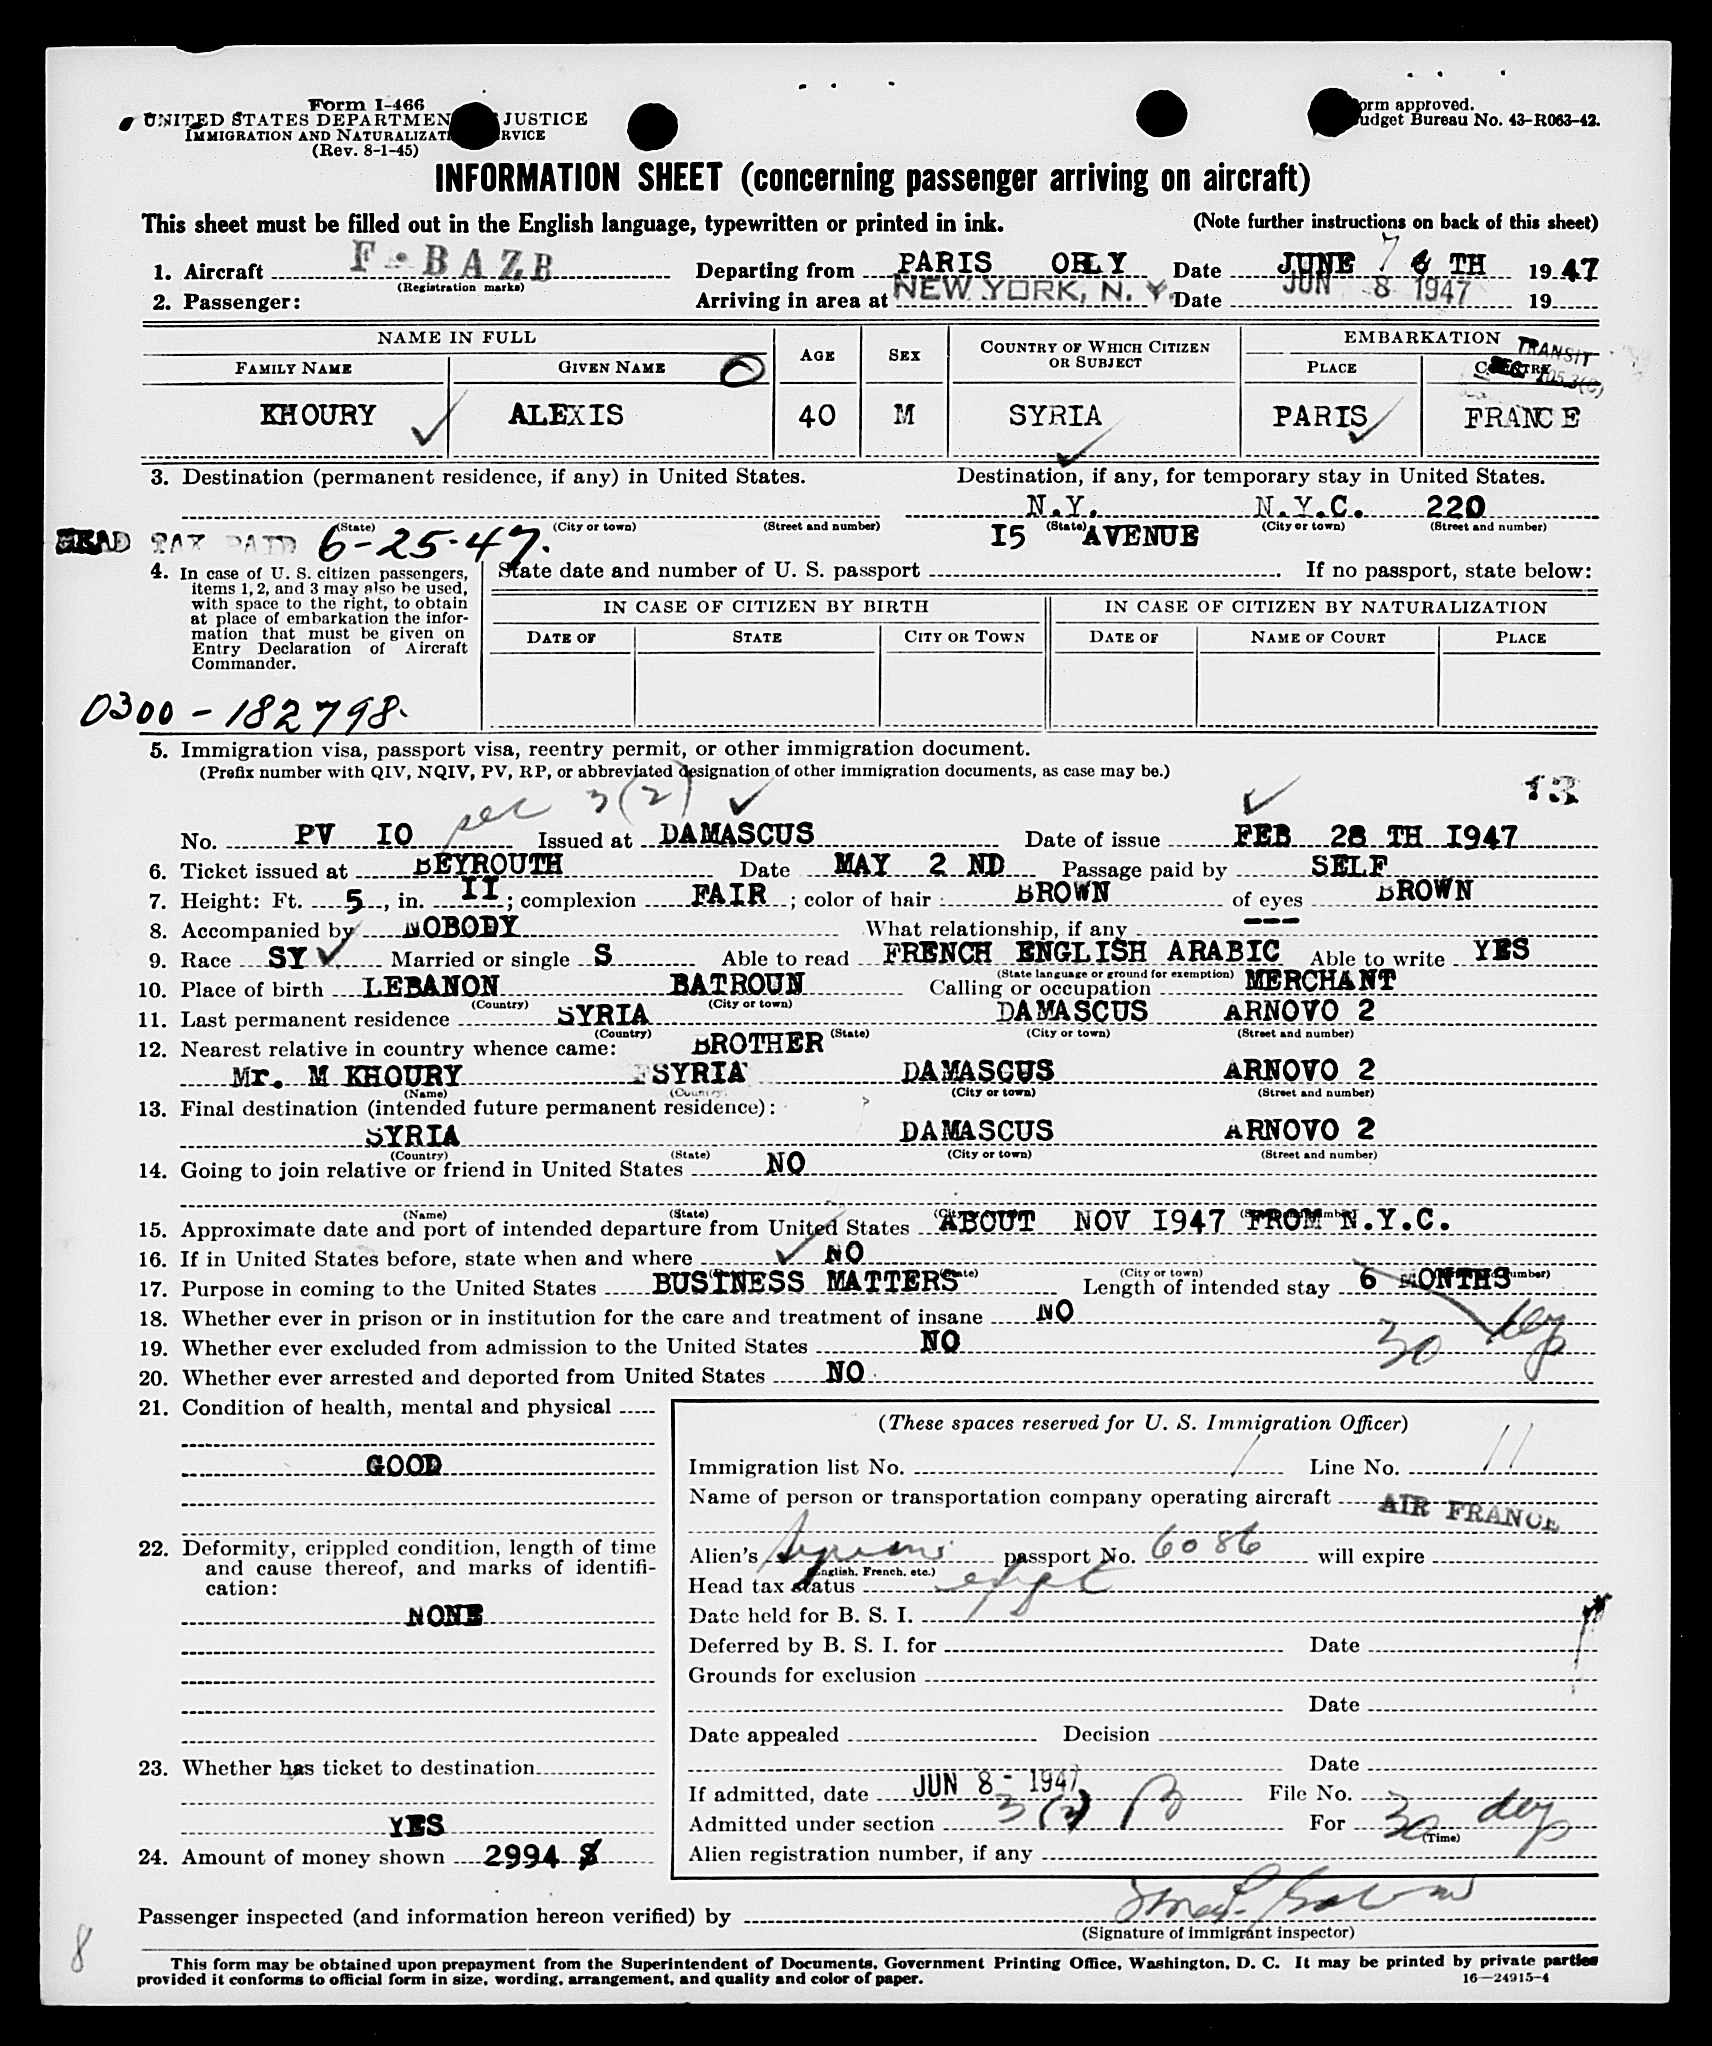 Form I-466
UNITED STATES DEPARTMENT JUSTICE
IMMIGRATION AND NATURALIZATI RVICE
(Rev. 8-1-45)
orm approved.
udget Bureau No. 43-R063-42.
INFORMATION SHEET (concerning passenger arriving on aircraft)
This sheet must be filled out in the English language, typewritten or printed in ink. (Note further instructions on back of this sheet)
1. Aircraft F-BAZB Departing from PARIS ORLY Date JUNE 7 TH 1947
(Registration marks)
2. Passenger: Arriving in area at NEW YORK, N. Y. Date JUN 8 1947 19
NAME IN FULL AGE SEX COUNTRY OF WHICH CITIZEN OR SUBJECT EMBARKATION TRANSIT
FAMILY NAME GIVEN NAME PLACE COUNTRY
KHOURY ALEXIS 40 M SYRIA PARIS FRANCE
3. Destination (permanent residence, if any) in United States. Destination, if any, for temporary stay in United States.
N.Y. N.Y.C. 220
(State) (City or town) (Street and number) (State) (City or town) (Street and number)
HEAD TAX PAID 6-25-47. I5 AVENUE
4. In case of U. S. citizen passengers, items 1, 2, and 3 may also be used, with space to the right, to obtain at place of embarkation the information that must be given on Entry Declaration of Aircraft Commander.
State date and number of U. S. passport . If no passport, state below:
IN CASE OF CITIZEN BY BIRTH IN CASE OF CITIZEN BY NATURALIZATION
DATE OF STATE CITY OR TOWN DATE OF NAME OF COURT PLACE
0300-182798.
5. Immigration visa, passport visa, reentry permit, or other immigration document.
(Prefix number with QIV, NQIV, PV, RP, or abbreviated designation of other immigration documents, as case may be.)
sec 3(2) 13
No. PV IO Issued at DAMASCUS Date of issue FEB 28 TH I947
6. Ticket issued at BEYROUTH Date MAY 2 ND Passage paid by SELF
7. Height: Ft. 5, in. II; complexion FAIR; color of hair BROWN of eyes BROWN
8. Accompanied by NOBODY What relationship, if any ---
9. Race SY Married or single S Able to read FRENCH ENGLISH ARABIC Able to write YES
(State language or ground for exemption)
10. Place of birth LEBANON BATROUN Calling or occupation MERCHANT
(Country) (City or town)
11. Last permanent residence SYRIA DAMASCUS ARNOVO 2
(Country) (State) (City or town) (Street and number)
12. Nearest relative in country whence came: BROTHER
Mr. M KHOURY SYRIA DAMASCUS ARNOVO 2
(Name) (Country) (City or town) (Street and number)
13. Final destination (intended future permanent residence):
SYRIA DAMASCUS ARNOVO 2
(Country) (State) (City or town) (Street and number)
14. Going to join relative or friend in United States NO
(Name) (State)
15. Approximate date and port of intended departure from United States ABOUT NOV I947 FROM N.Y.C.
16. If in United States before, state when and where NO
(City or town)
17. Purpose in coming to the United States BUSINESS MATTERS Length of intended stay 6 MONTHS
18. Whether ever in prison or in institution for the care and treatment of insane NO
19. Whether ever excluded from admission to the United States NO 30
20. Whether ever arrested and deported from United States NO
21. Condition of health, mental and physical
GOOD
22. Deformity, crippled condition, length of time and cause thereof, and marks of identification:
NONE
23. Whether has ticket to destination
YES
24. Amount of money shown 2994 $
(These spaces reserved for U. S. Immigration Officer)
Immigration list No. 1 Line No. 11
Name of person or transportation company operating aircraft AIR FRANCE
Alien's Syrians passport No. 6086 will expire
(English, French, etc.)
Head tax status
Date held for B. S. I.
Deferred by B. S. I. for Date
Grounds for exclusion
Date
Date appealed Decision
Date
If admitted, date JUN 8 - 1947 File No.
Admitted under section 3(2) B For 30 dys
(Time)
Alien registration number, if any
Passenger inspected (and information hereon verified) by
(Signature of immigrant inspector)
8
This form may be obtained upon prepayment from the Superintendent of Documents, Government Printing Office, Washington, D. C. It may be printed by private parties
provided it conforms to official form in size, wording, arrangement, and quality and color of paper. 16—24915-4